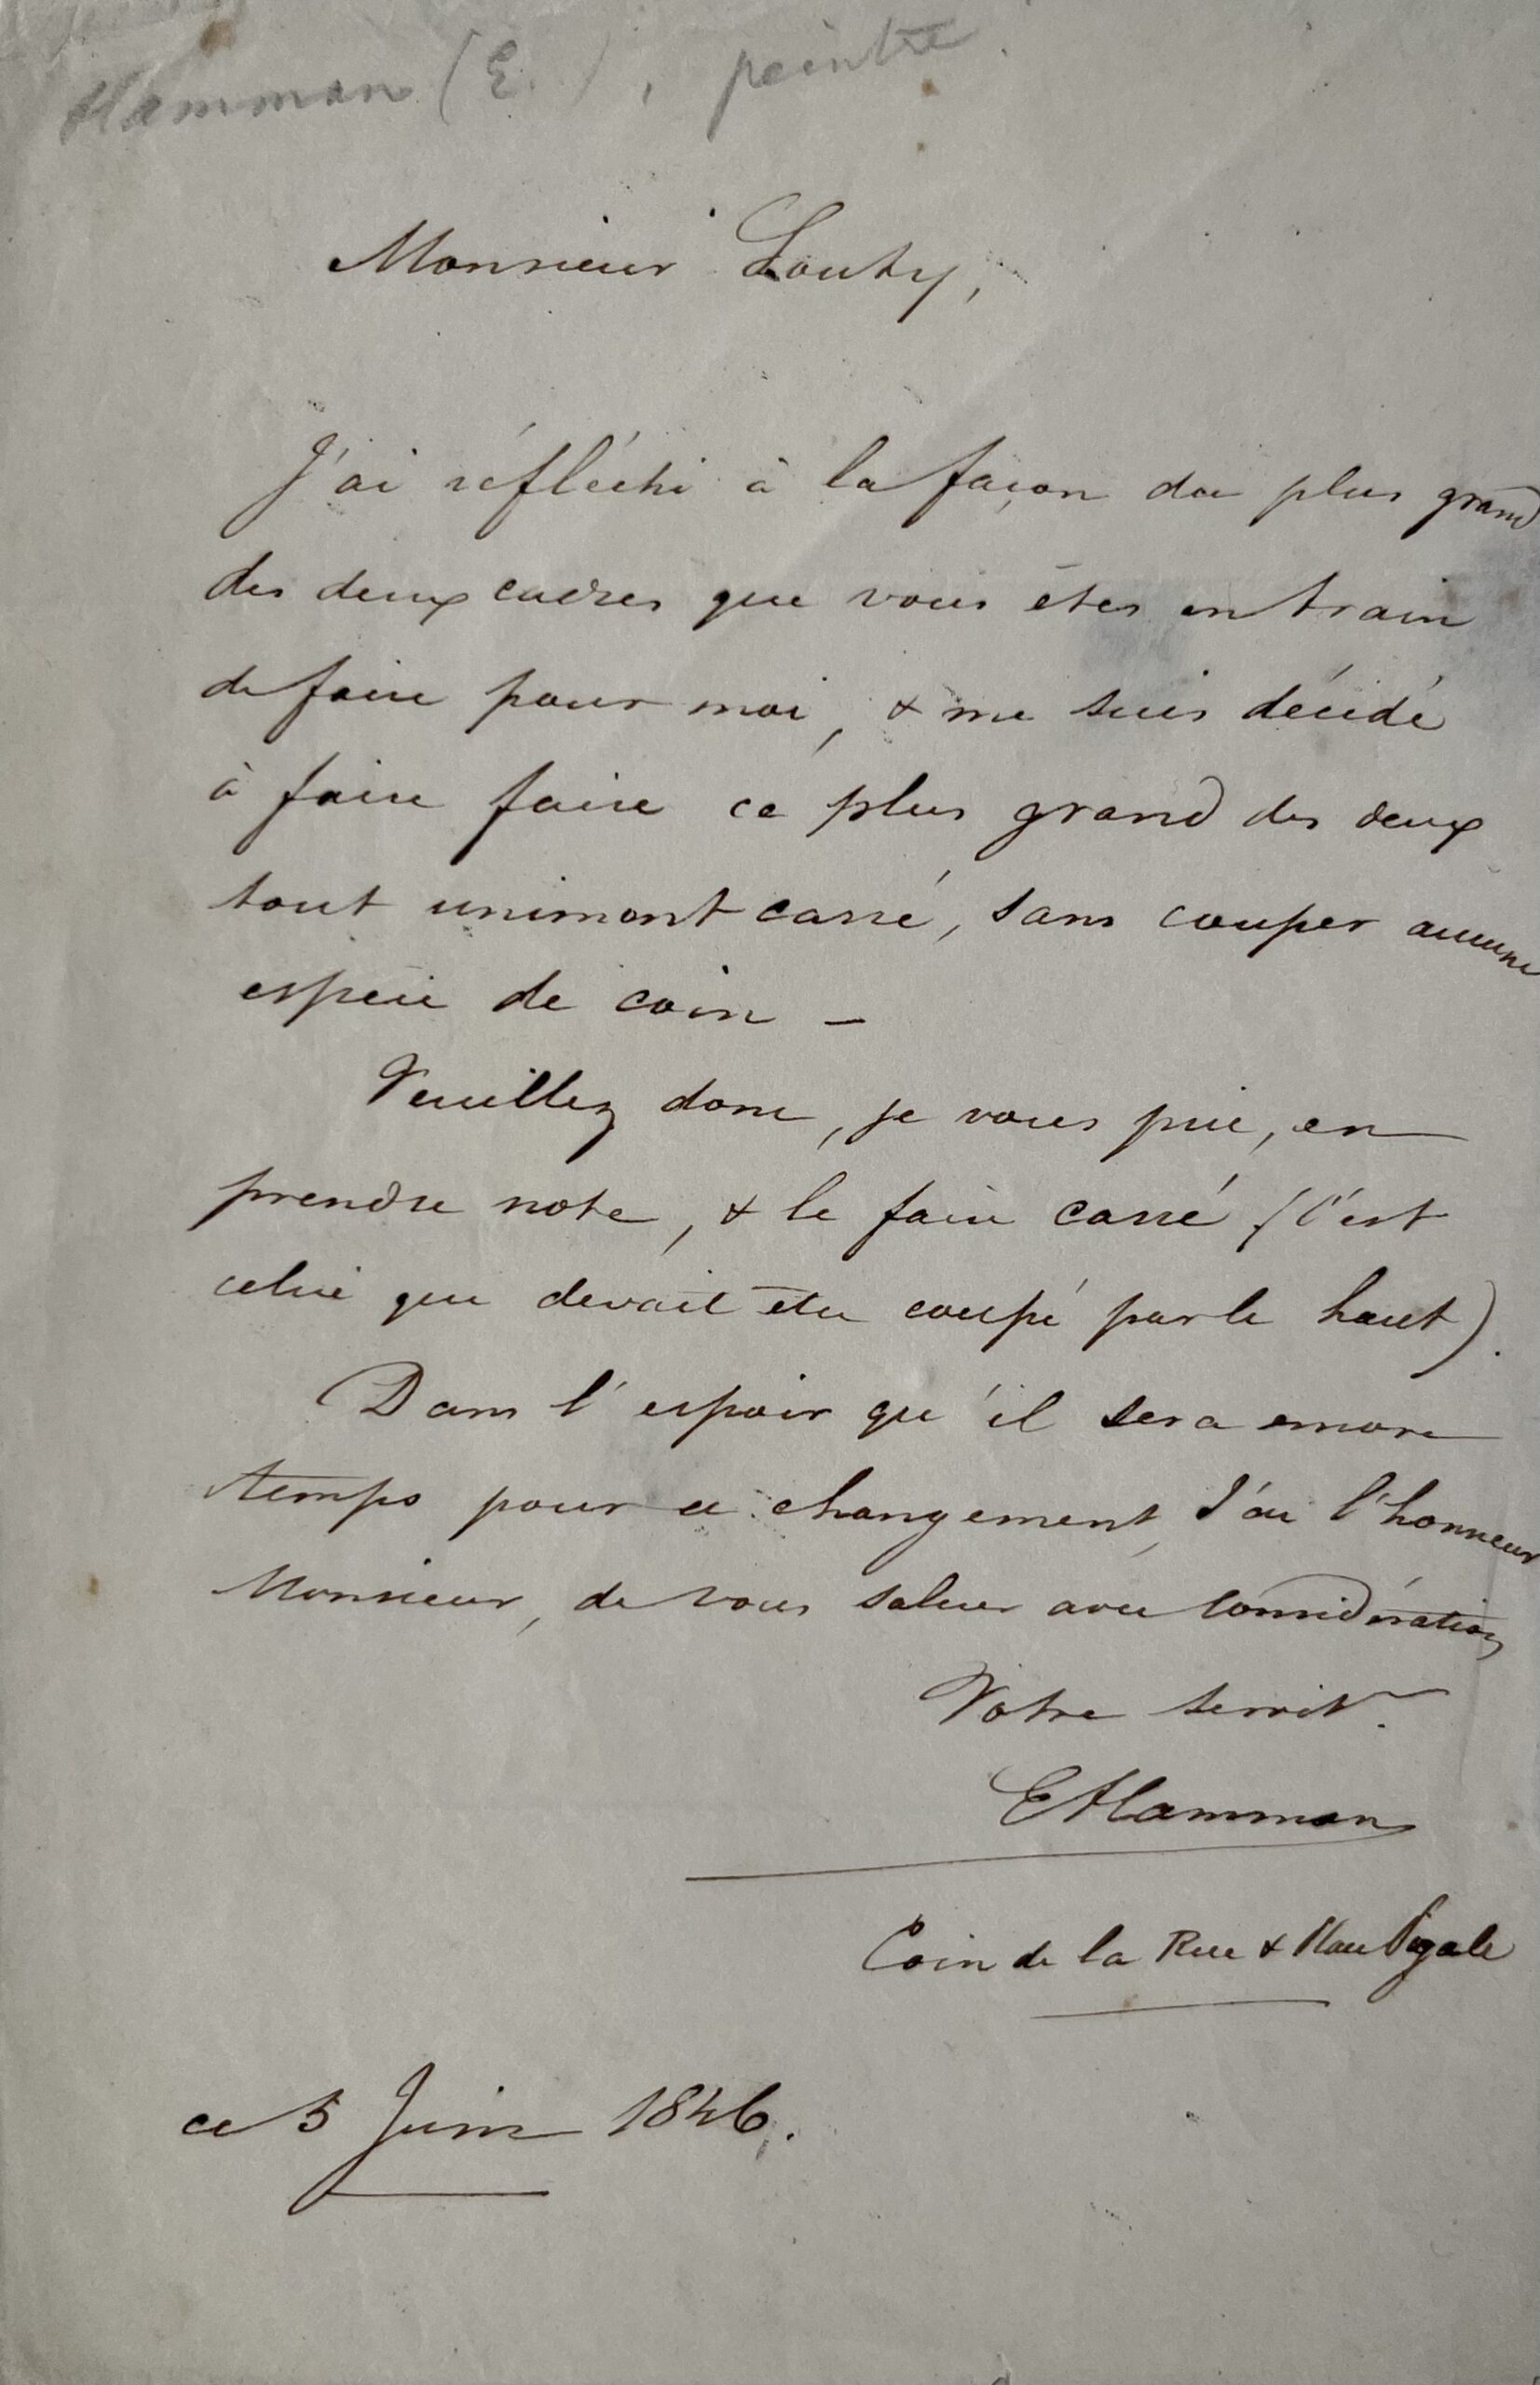 Hamman (E.), peintre.
Monsieur Souty,
J'ai réfléchi à la façon du plus grand
des deux cadres que vous êtes en train
de faire pour moi, & me suis décidé
à faire faire ce plus grand des deux
tout uniment carré, sans couper aucune
espèce de coin –
Veuillez donc, je vous prie, en
prendre note, & le faire carré (c'est
celui qui devait être coupé par le haut).
Dans l'espoir qu'il sera encore
temps pour ce changement, J'ai l'honneur
Monsieur, de vous saluer avec Considération
Votre servitr.
EHamman
Coin de la Rue & Place Pigale
ce 5 Juin 1846.